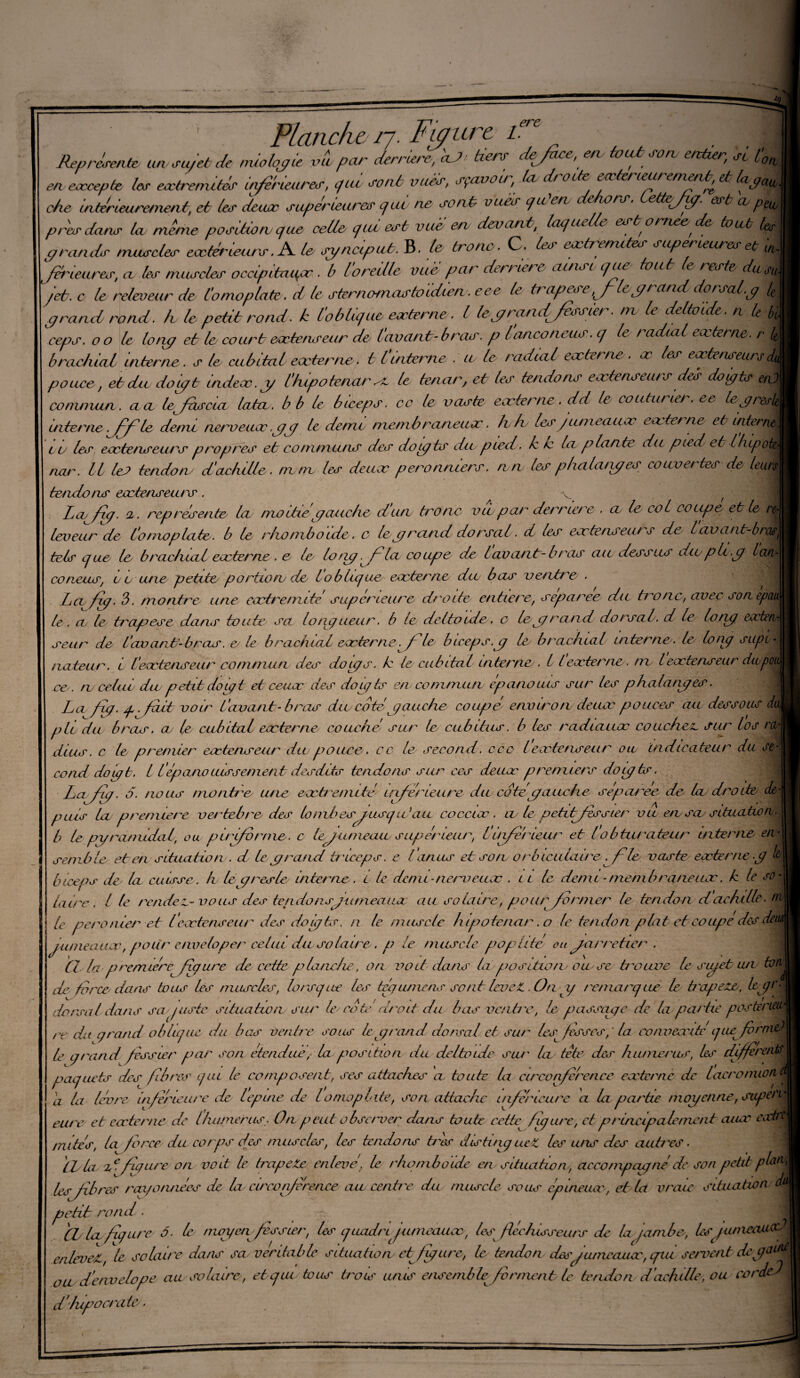 Planche 17. Figure 1.ere
Représente un sujet de miologie vû par derriere, aux tiers de face, en tout son entier, si l'on
en excepte les extremités inférieures, qui sont vuës, sçavoir, la droite exterieurement, et la gau-
che intérieurement, et les deux supérieures qui ne sont vuës qu'en dehors. Cette fig. est a peu
près dans la même position que celle qui est vuë en devant, laquelle est ornée de tout les
grands muscles extérieurs. A le synciput. B. le tronc. C. les extremités supérieures et in-
férieures, a les muscles occipitaux. b l'oreille vuë par derriere ainsi que tout le reste du su-
jet. c le releveur de l'omoplate. d le sternomastoïdien. eee le trapese, f le grand dorsal. g le
grand rond. h le petit rond. k l'oblique externe. l le grand fessier. m le deltoïde. n le bi-
ceps. o o le long et le court extenseur de l'avant-bras. p l'anconeus. q le radial externe. r le
brachial interne. s le cubital externe. t l'interne. u le radial externe. x les extenseurs du
pouce, et du doigt index. y l'hipotenar. z le tenar, et les tendons extenseurs des doigts en
commun. a a le fascia lata. b b le biceps. cc le vaste externe. dd le couturier. ee le gresle
interne. ff le demi nerveux. gg le demi membraneux. h h les jumeaux externe et interne.
i i les extenseurs propres et communs des doigts du pied. k k la plante du pied et l'hipote-
nar. ll le tendon d'achille. m m les deux peronniers. n n les phalanges couvertes de leurs
tendons extenseurs.
La fig. 2. représente la moitié gauche d'un tronc vû par derriere. a le col coupé et le re-
leveur de l'omoplate. b le rhomboïde. c le grand dorsal. d les extenseurs de l'avant-bras,
tels que le brachial externe. e le long. f la coupe de l'avant-bras au dessus du pli. g l'an-
coneus, i i une petite portion de l'oblique externe du bas ventre.
La fig. 3. montre une extremité supérieure droite entiere, séparée du tronc, avec son épau-
le. a le trapese dans toute sa longueur. b le deltoïde. c le grand dorsal. d le long exten-
seur de l'avant-bras. e le brachial externe. f le biceps. g le brachial interne. le long supi-
nateur. i l'extenseur commun des doigs. k le cubital interne. l l'externe. m l'extenseur du pou
ce. n celui du petit doigt et ceux des doigts en commun épanouis sur les phalanges.
La fig. 4. fait voir l'avant-bras du côté gauche coupé environ deux pouces au dessous du
pli du bras. a le cubital externe couché sur le cubitus. b les radiaux couchez sur l'os ra-
dius. c le premier extenseur du pouce. cc le second. ccc l'extenseur ou indicateur du se-
cond doigt. l l'épanouissement desdits tendons sur ces deux premiers doigts.
La fig. 5. nous montre une extremité inférieure du côté gauche séparée de la droite de-
puis la premiere vertebre des lombes jusqu'au coccix. a le petit fessier vû en sa situation.
b le pyramidal, ou piriforme. c le jumeau supérieur, l'inférieur et l'obturateur interne en-
semble et en situation. d le grand triceps. e l'anus et son orbiculaire. f le vaste externe. g le
biceps de la cuisse. h le gresle interne. i le demi-nerveux. i i le demi-membraneux. k le so-
laire. l le rendez-vous des tendons jumeaux au solaire, pour former le tendon d'achille. m
le peronier et l'extenseur des doigts. n le muscle hipotenar. o le tendon plat et coupé des deux
jumeaux, pour enveloper celui du solaire. p le muscle poplité ou jarretier.
A la première figure de cette planche, on voit dans la position ou se trouve le sujet un ton
de force dans tous les muscles, lorsque les tégumens sont levez. On y remarque le trapeze, le gr.
dorsal dans sa juste situation sur le coté droit du bas ventre, le passage de la partie posterieu-
re du grand oblique du bas ventre sous le grand dorsal et sur les fesses; la convexité que forme
le grand fessier par son étenduë, la position du deltoïde sur la tête des humerus, les différents
paquets des fibres qui le composent, ses attaches à toute la circonférence externe de l'acromion et
à la lèvre inférieure de l'épine de l'omoplate, son attache inférieure à la partie moyenne, supéri-
eure et externe de l'humerus. On peut observer dans toute cette figure, et principalement aux extre-
mités, la force du corps des muscles, les tendons très distinguez les uns des autres.
A la 2.e figure on voit le trapeze enlevé, le rhomboïde en situation, accompagné de son petit plan,
les fibres rayonnées de la circonférence au centre du muscle sous épineux, et la vraie situation du
petit rond.
A la figure 5. le moyen fessier, les quadrijumeaux, les fléchisseurs de la jambe, les jumeaux
enlevez, le solaire dans sa véritable situation et figure, le tendon des jumeaux, qui servent de gaine
ou d'envelope au solaire, et qui tous trois unis ensemble forment le tendon d'achille, ou corde
d'hipocrate.